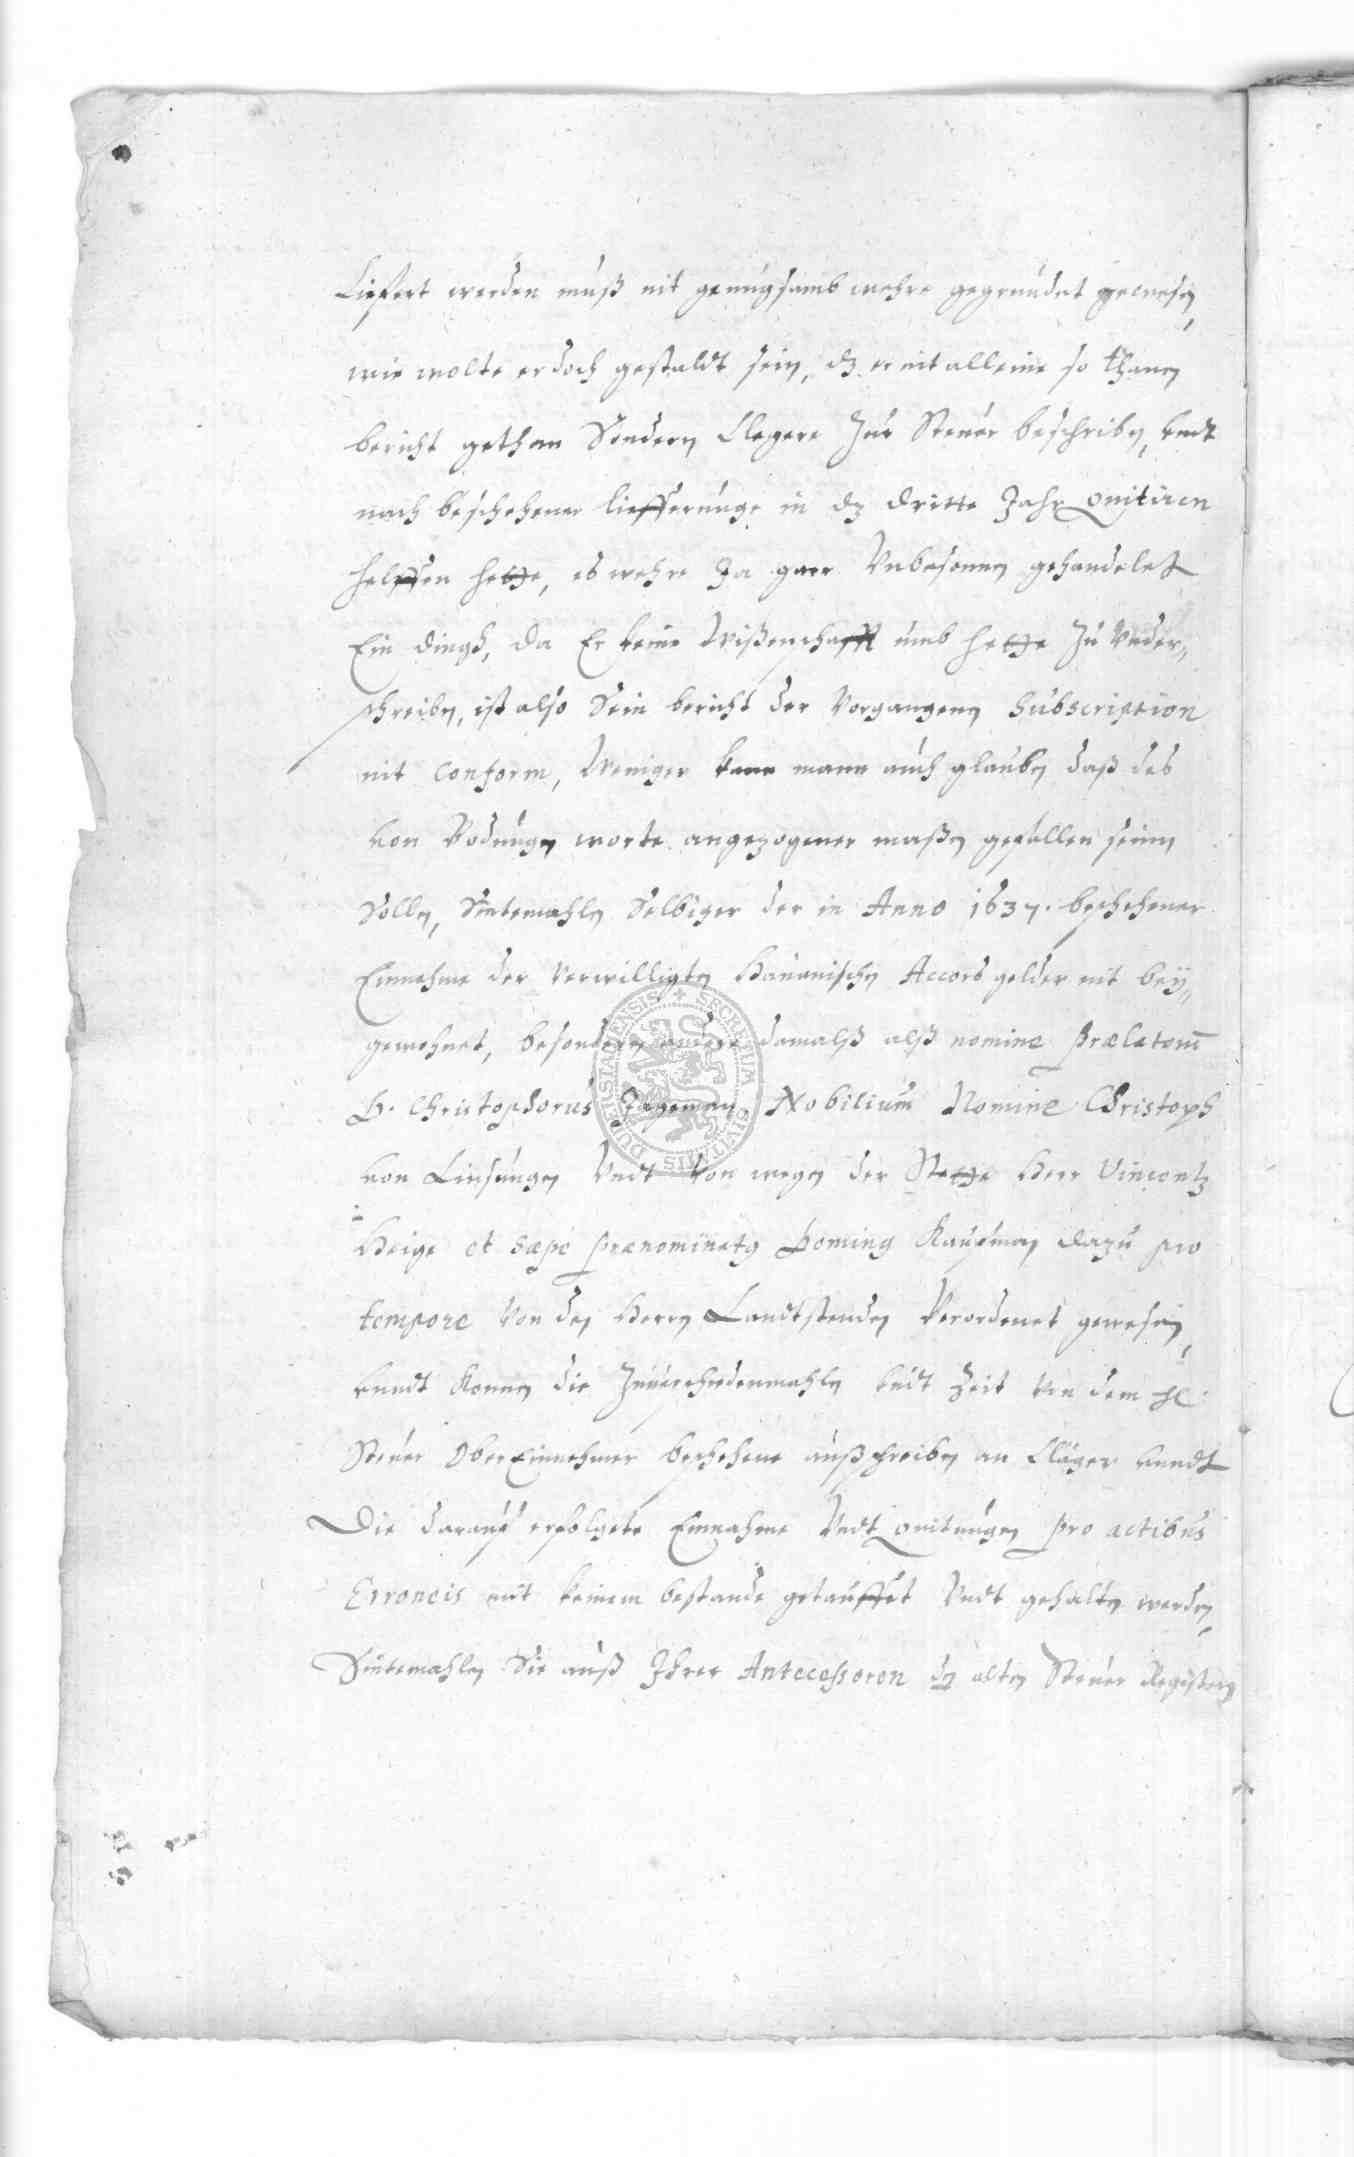 Liefert werden muß nit genugsamb wehre gegrundet gewesen,
wie wolte er doch gestaldt sein, dz er nit alleine so thanen
bericht gethan Sondern Clegere Zur Steuer beschriben, undt
nach beschehener liefferunge in dz dritte Jahr quitiren
helffen hette, es wehre Ja gaer Unbesonnen gehandelet
Ein dingh, da Er keine Wißenschafft umb hette Zu Under„
schreiben, ist also Sein bericht der Vorgangenen Subscription
nit conform, Weniger kann mann auch glauben daß des
von Bodungen worte angezogener maßen gefallen seinn
Sollen, Sintemahlen Selbiger der in Anno 1637. beschehener
Einnahme der Verwilligten Hananischen Accords gelder nit bey„
gewohnet, besondern andere damalß alß nomine Prælatorum
H. Christophorus Jageman, Nobilium Nomine Christoph
von Linsungen Undt Von wegen der Stette Herr Vincentz
Heige et sæpe prænominatus Hening Kaufman dazu pro
tempore Von den Herrn Landtstenden Verordenet gewesen,
unndt Konnen die Zuunterschiedenmahlen undt Zeit Von dem H
Steuer OberEinnehmer beschehene außschreiben an Cläger unndt
Die darauf erfolgete Einnahme Undt quitungen pro actibus
Erroneis mit keinem bestande getauffet Undt gehalten werden,
Sintemahlen Sie auß Ihrer Antecessoren den alten Steuer Registern
SECRETUM CIVITATIS DUDERSTADIENSIS